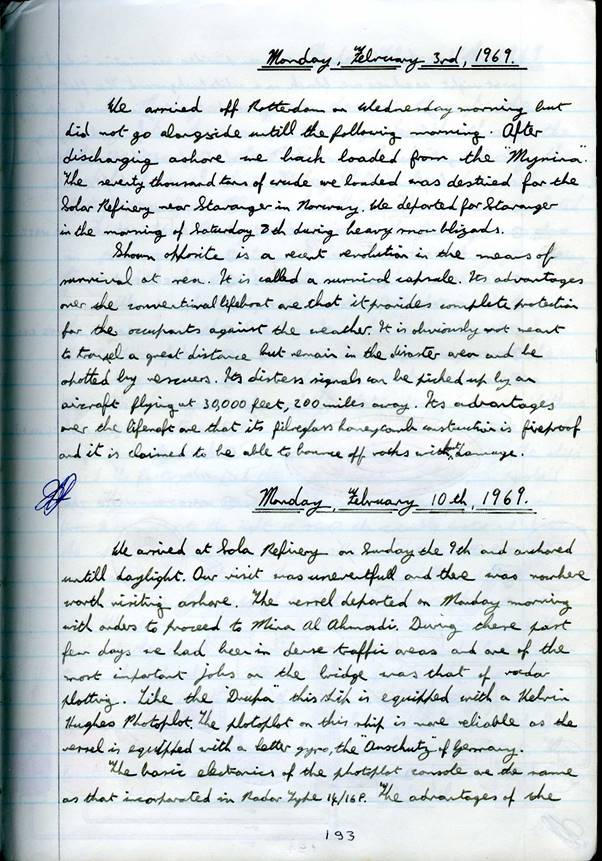 Monday, February 3rd, 1969.
We arrived off Rotterdam on Wednesday morning but
did not go alongside untill the following morning. After
discharging ashore we back loaded from the "Mynira".
The seventy thousand tons of crude we loaded was destined for the
Solar Refinery near Stavanger in Norway. We departed for Stavanger
in the morning of Saturday 8th during heavy snow blizards.
Shown opposite is a recent revolution in the means of
survival at sea. It is called a survival capsule. Its advantages
over the conventional lifeboat are that it provides complete protection
for the occupants against the weather. It is obviously not meant
to travel a great distance but remain in the disaster area and be
spotted by rescuers. Its distress signals can be picked up by an
aircraft flying at 30,000 feet, 200 miles away. Its advantages
over the liferaft are that its fibreglass honeycomb construction is fireproof
and it is claimed to be able to bounce off rocks without damage.
Monday, February 10th, 1969.
We arrived at Sola Refinery on Sunday the 9th and anchored
untill daylight. Our visit was uneventfull and there was nowhere
worth visiting ashore. The vessel departed on Monday morning
with orders to proceed to Mina Al Ahmadi. During these past
few days we had been in dense traffic areas and one of the
most important jobs on the bridge was that of radar
plotting. Like the "Drupa" this ship is equipped with a Kelvin
Hughes Photoplot. The photoplot on this ship is more reliable as the
vessel is equipped with a better gyro, the "Anschutz" of Germany.
The basic electronics of the photoplot console are the same
as that incorporated in Radar Type 14/16P. The advantages of the
193